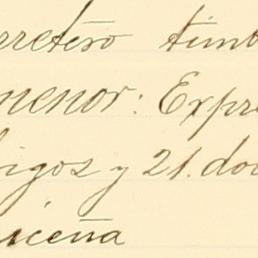 rretero timb
menor: Expre
igos y 21. do
iceña